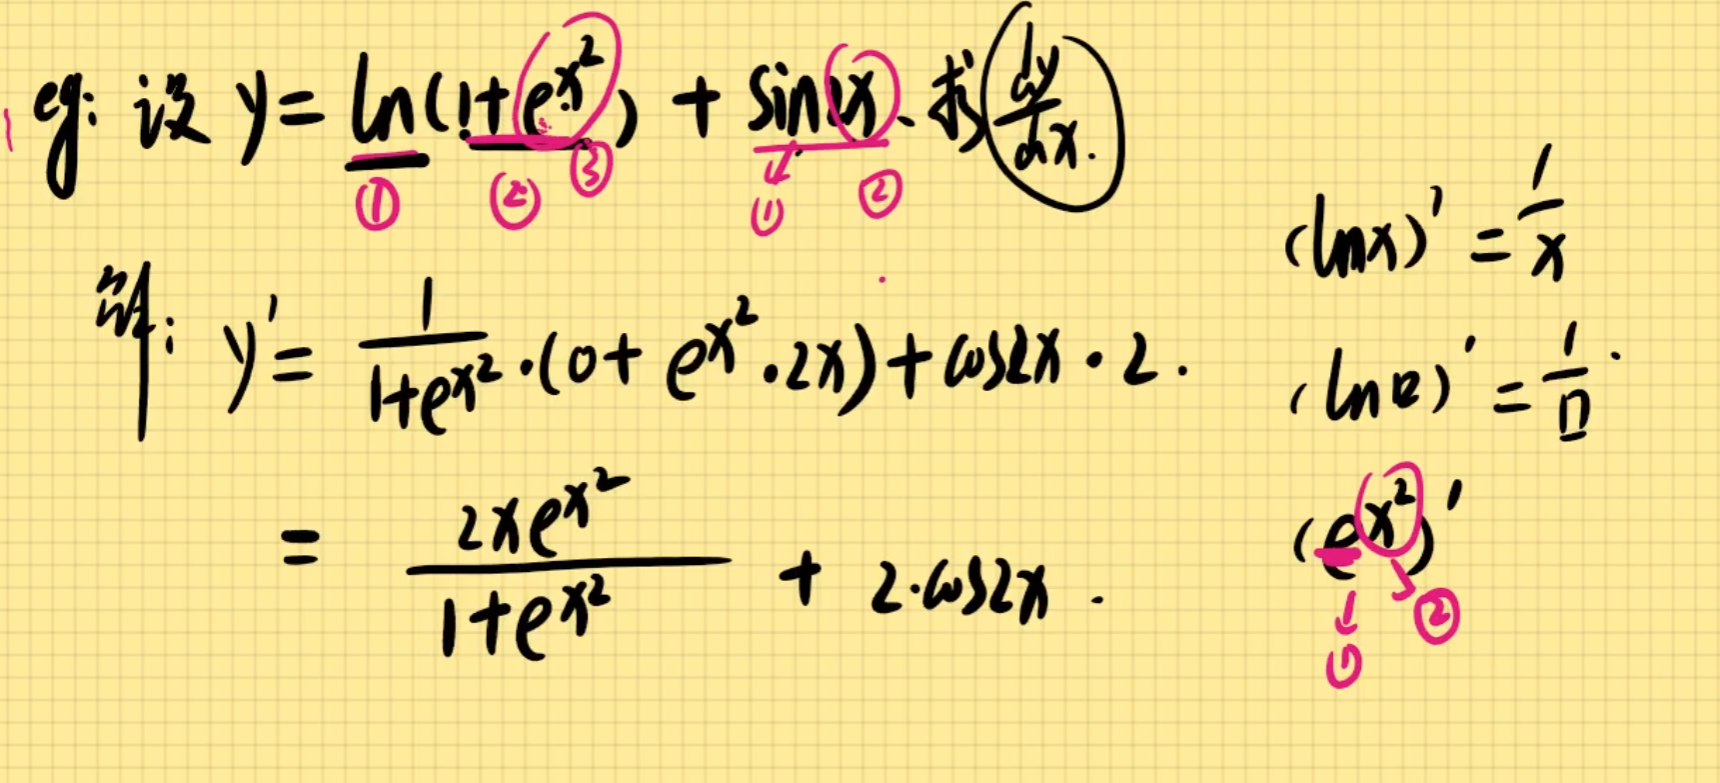 eg: 设 y = ln(1+e^{x^2}) + sin2x. 求 dy/dx.
① ② ③ ① ②
解: y' = 1/(1+e^{x^2}) · (0 + e^{x^2} · 2x) + cos2x · 2.
= 2xe^{x^2}/(1+e^{x^2}) + 2·cos2x.
(lnx)' = 1/x
(ln□)' = 1/□.
(e^{x^2})'
① ②